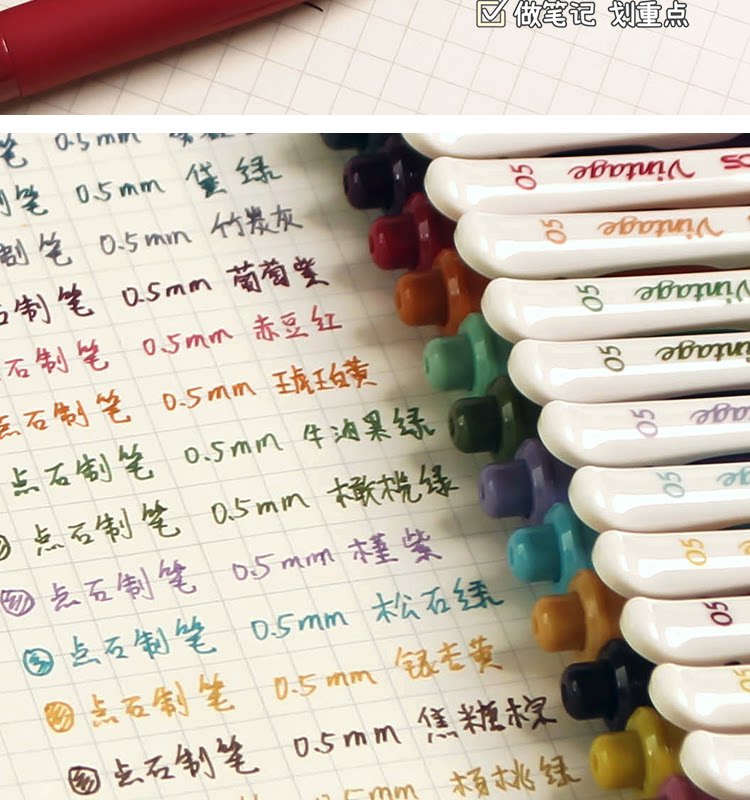 做笔记 划重点
笔 0.5mm
制笔 0.5mm 黛绿
制笔 0.5mm 竹炭灰
石制笔 0.5mm 葡萄紫
石制笔 0.5mm 赤豆红
点石制笔 0.5mm 琥珀黄
点石制笔 0.5mm 牛油果绿
点石制笔 0.5mm 橄榄绿
点石制笔 0.5mm 槿紫
点石制笔 0.5mm 松石绿
点石制笔 0.5mm 银杏黄
点石制笔 0.5mm 焦糖棕
5mm 杨桃绿
05 Vintage 05
05 Vintage
05 Vintage
05 Vintage
05
05
05
05
05